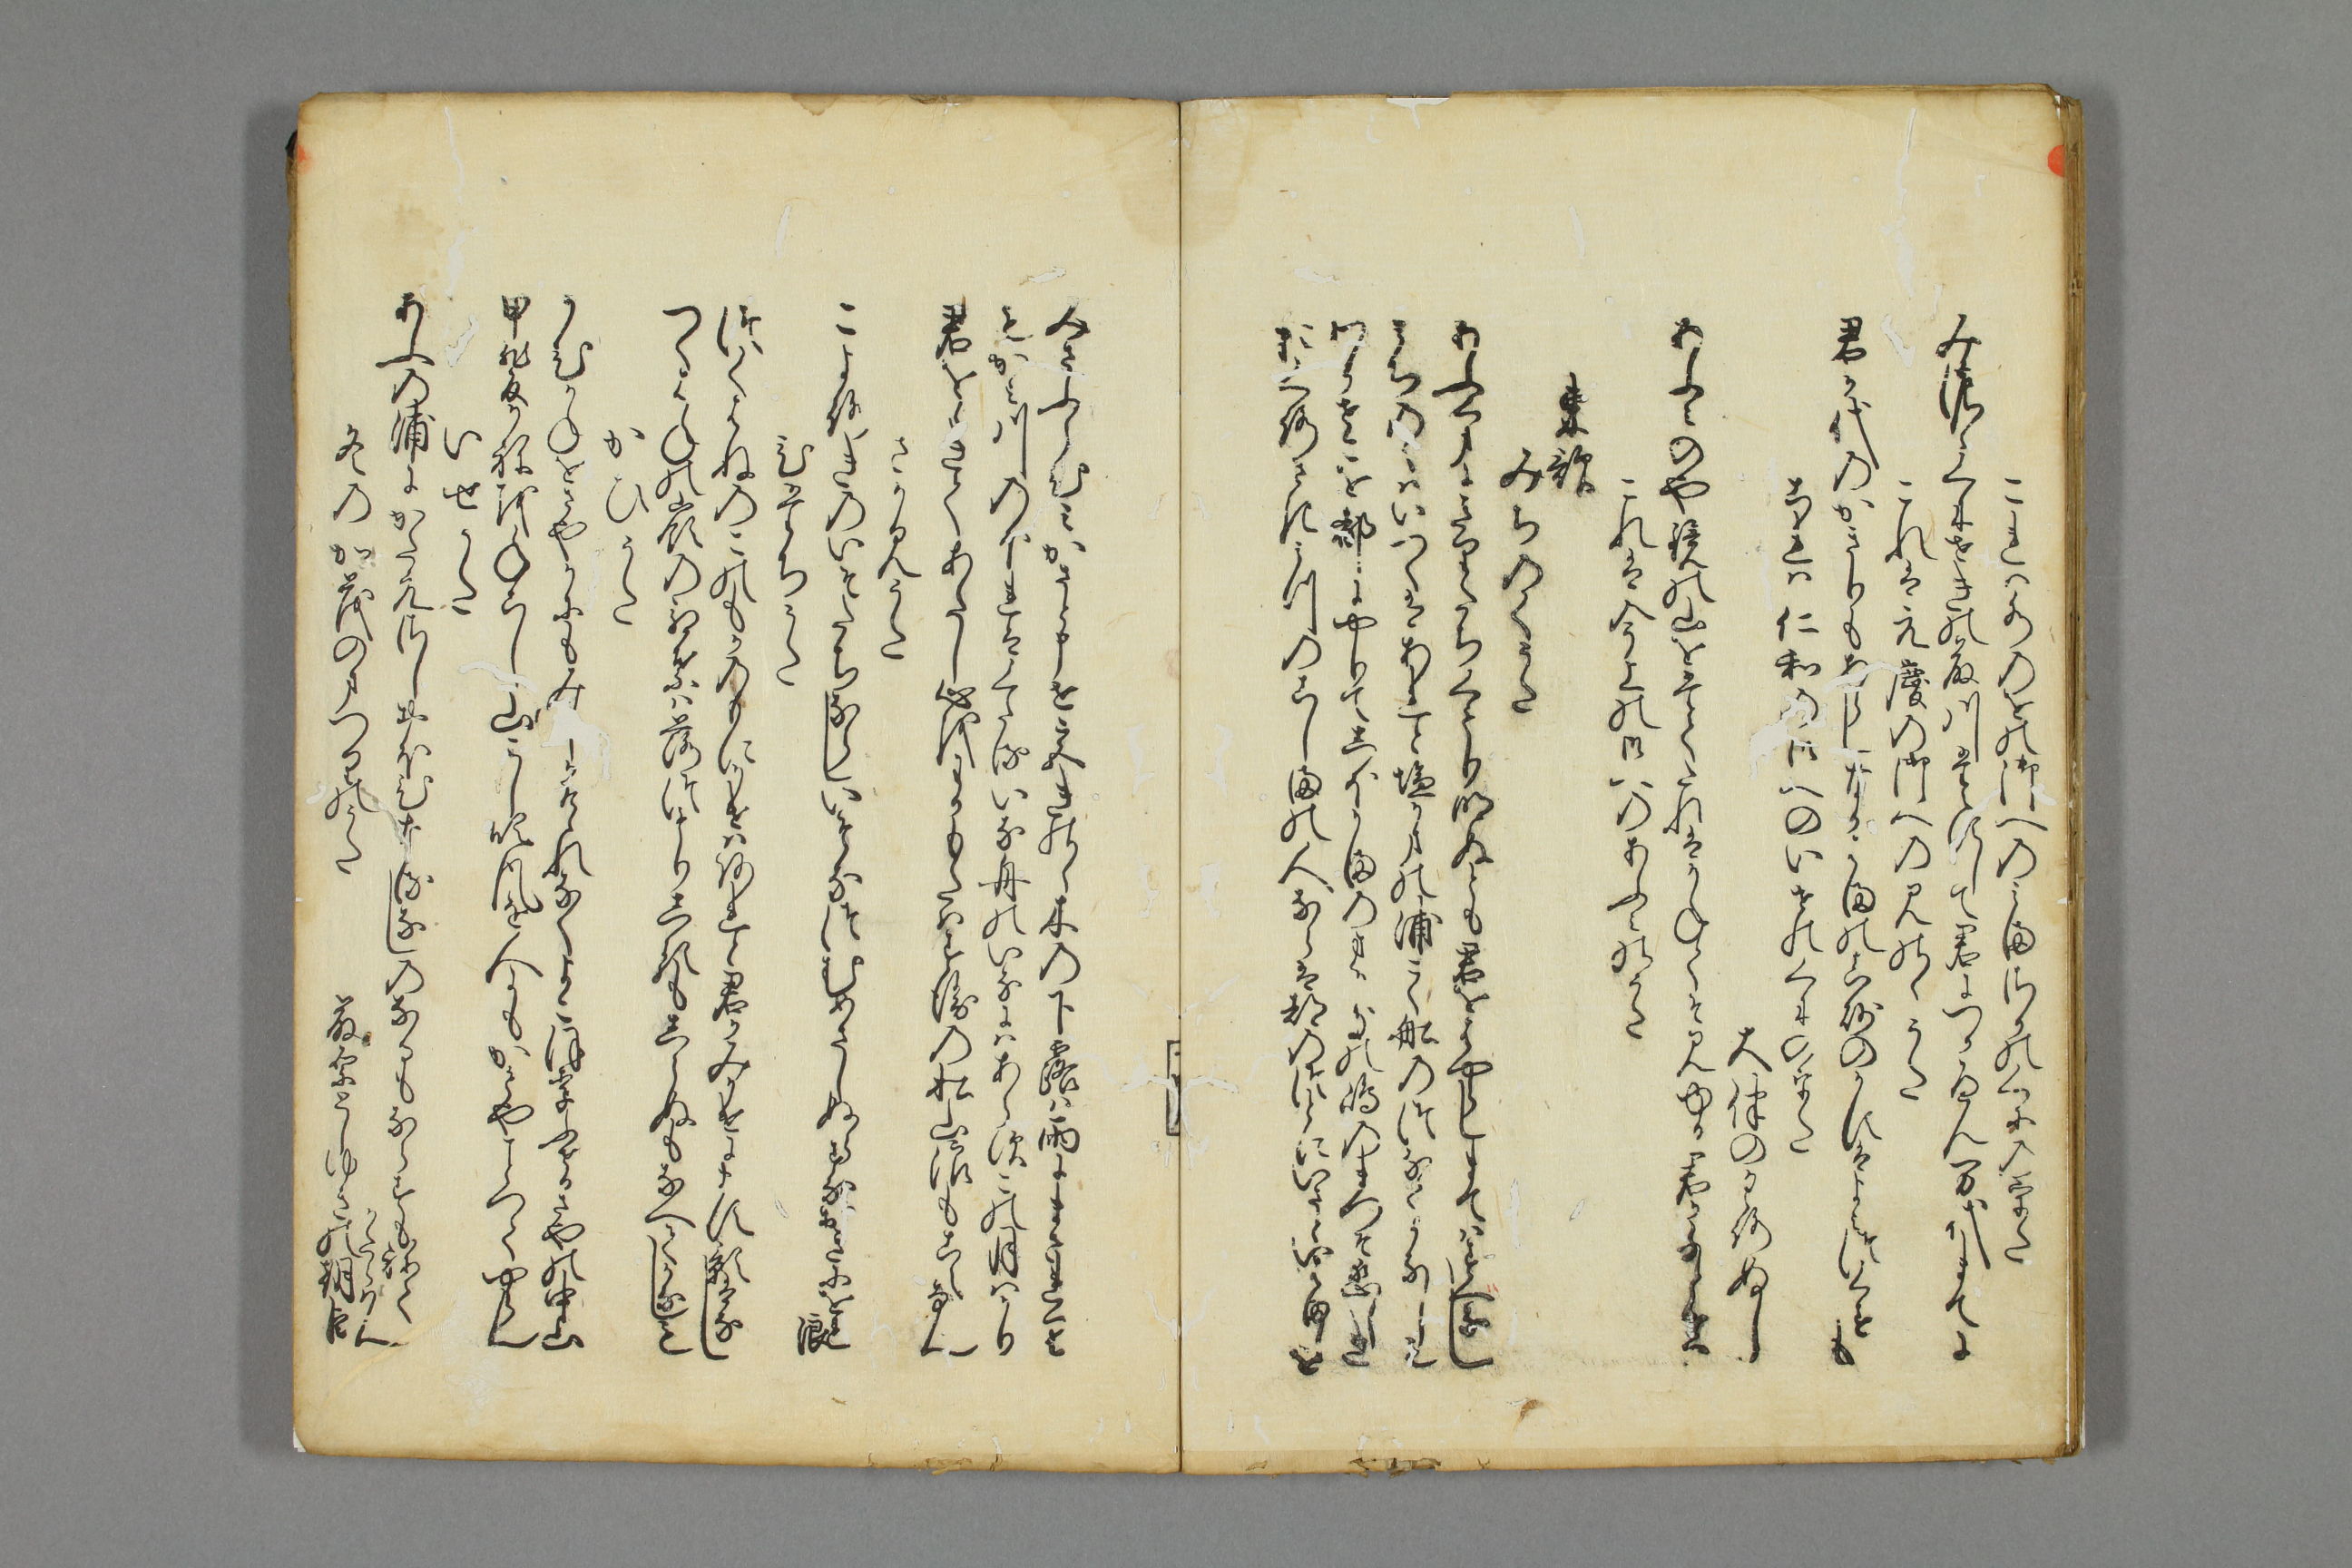 これは水のをの御へのみまさかの国のうた
みのゝくにせきの藤川たえすして君につかへん万代まてに
これは元慶の御への見のゝうた
君か代のかきりもあらしなかはまのまさこのかすはよみつくすとも
これは仁和の御へのいせのくにのうた
大伴のくろぬし
あふみのや鏡の山をたてたれはかねてそ見ゆる君かちとせは
これは今上の御への
あふみのうた
東歌
みちのくうた
あふくまに霧たちくもり明ぬとも君をはやらしまてはすへなし
みちのくはいつくはあれと塩かまの浦こく舟のつなてかなしも
わかせこを都にやりてしほかまのまかきの嶋のまつそ恋しき
をくろさきみつのこしまの人ならは都のつとにいさといはましを
みさふらひみかさと申せみやきのゝ木の下露は雨にまされり
もかみ川のほれはくたるいな舟のいなにはあらすこの月はかり
君をゝきてあたし心をわかもたはすゑの松山浪もこえなん
さかみうた
こよろきのいそたちならしいそなつむめさしぬらすなおきにをれ浪
ひたちうた
つくはねのこのもかのもにかけはあれと君かみかけにます影はなし
つくはねの峯のもみちは落つもりしるもしらぬもなへてかなしも
かひうた
かひかねをさやにもみしかけゝれなくよこほりふせるさやの中山
甲斐かねをねこし山こし吹風を人にもかもやことつてやらん
いせうた
あふの浦にかたえさしおほひなるなしのなりもならすもねてかたらはん
冬の賀茂のまつりのうた 藤原としゆきの朝臣